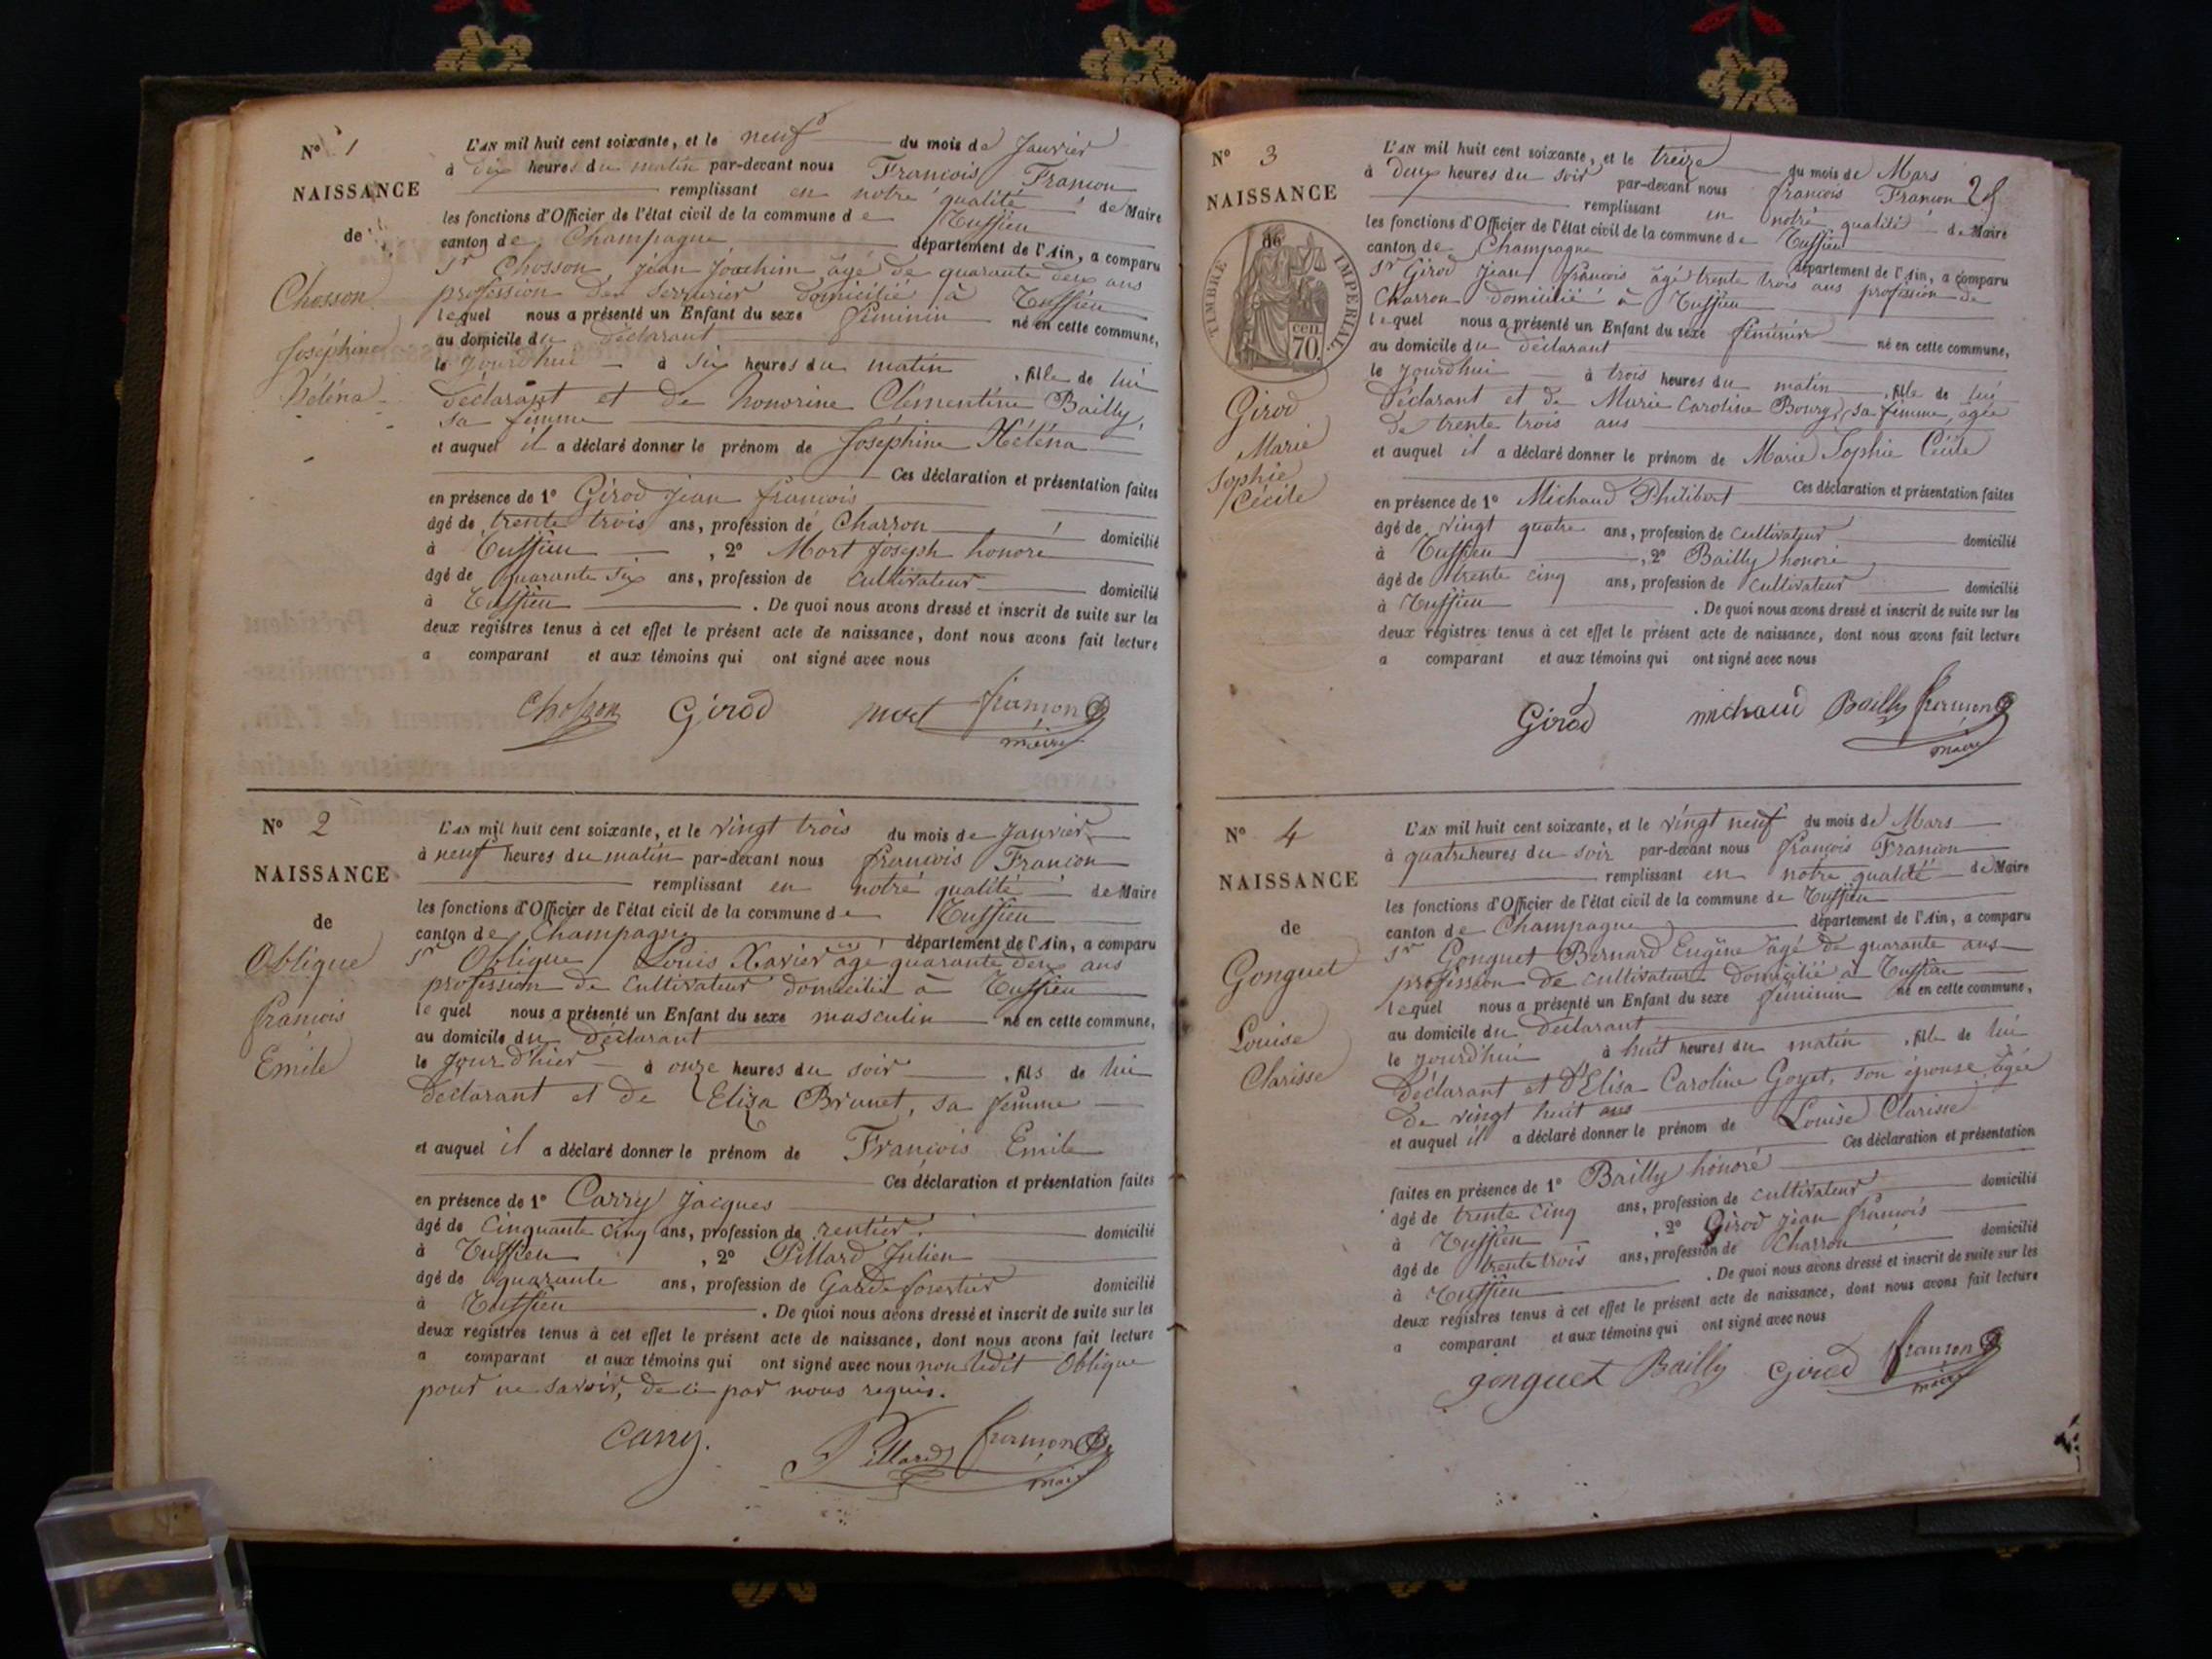 N° 1
NAISSANCE
de
Chosson
Joséphine
Héléna
L'AN mil huit cent soixante, et le neuf du mois de Janvier
à dix heures du matin par-devant nous François Françon
remplissant en notre qualité de Maire
les fonctions d'Officier de l'état civil de la commune de Tussieu
canton de Champagne département de l'Ain, a comparu
Sr Chosson, Jean Joachim âgé de quarante deux ans
profession de Serrurier domicilié à Tussieu
lequel nous a présenté un Enfant du sexe féminin né en cette commune,
au domicile du déclarant
le jourd'hui à six heures du matin, fille de lui
déclarant et de honorine Clémentine Bailly,
sa femme
et auquel il a déclaré donner le prénom de Joséphine Héléna
Ces déclaration et présentation faites
en présence de 1° Girod Jean françois
âgé de trente trois ans, profession de Charron domicilié
à Tussieu, 2° Mort joseph honoré
âgé de quarante six ans, profession de cultivateur domicilié
à Tussieu. De quoi nous avons dressé et inscrit de suite sur les
deux registres tenus à cet effet le présent acte de naissance, dont nous avons fait lecture
a comparant et aux témoins qui ont signé avec nous
Chosson Girod mort françon
maire
N° 2
NAISSANCE
de
Oblique
françois
Emile
L'AN mil huit cent soixante, et le vingt trois du mois de Janvier
à neuf heures du matin par-devant nous françois Françon
remplissant en notre qualité de Maire
les fonctions d'Officier de l'état civil de la commune de Tussieu
canton de Champagne département de l'Ain, a comparu
Sr Oblique Louis Xavier âgé quarante deux ans
profession de cultivateur domicilié à Tussieu
lequel nous a présenté un Enfant du sexe masculin né en cette commune,
au domicile du déclarant
le jour d'hier à onze heures du soir, fils de lui
déclarant et de Elisa Brunet, sa femme
et auquel il a déclaré donner le prénom de François Emile
Ces déclaration et présentation faites
en présence de 1° Carry Jacques
âgé de cinquante cinq ans, profession de rentier domicilié
à Tussieu, 2° Pillard Julien
âgé de quarante ans, profession de Garde forestier domicilié
à Tussieu. De quoi nous avons dressé et inscrit de suite sur les
deux registres tenus à cet effet le présent acte de naissance, dont nous avons fait lecture
a comparant et aux témoins qui ont signé avec nous non ledit Oblique
pour ne savoir, de ce par nous requis.
Carry. Pillard françon
maire
N° 3
NAISSANCE
de
TIMBRE IMPERIAL
cen.
70.
Girod
Marie
Sophie
Cécile
L'AN mil huit cent soixante, et le treize du mois de Mars
28
à deux heures du soir par-devant nous françois Françon
remplissant en notre qualité de Maire
les fonctions d'Officier de l'état civil de la commune de Tussieu
canton de Champagne département de l'Ain, a comparu
Sr Girod Jean françois âgé trente trois ans profession de
Charron domicilié à Tussieu
lequel nous a présenté un Enfant du sexe féminin né en cette commune,
au domicile du déclarant
le jourd'hui à trois heures du matin, fille de lui
déclarant et de Marie Caroline Bourg, sa femme, agée
de trente trois ans
et auquel il a déclaré donner le prénom de Marie Sophie Cécile
Ces déclaration et présentation faites
en présence de 1° Michaud Philibert
âgé de vingt quatre ans, profession de cultivateur domicilié
à Tussieu, 2° Bailly honoré
âgé de trente cinq ans, profession de cultivateur domicilié
à Tussieu. De quoi nous avons dressé et inscrit de suite sur les
deux registres tenus à cet effet le présent acte de naissance, dont nous avons fait lecture
a comparant et aux témoins qui ont signé avec nous
Girod michaud Bailly françon
maire
N° 4
NAISSANCE
de
Gonguet
Louise
Clarisse
L'AN mil huit cent soixante, et le vingt neuf du mois de Mars
à quatre heures du soir par-devant nous françois Françon
remplissant en notre qualité de Maire
les fonctions d'Officier de l'état civil de la commune de Tussieu
canton de Champagne département de l'Ain, a comparu
Sr Gonguet Bernard Eugène âgé de quarante ans
profession de cultivateur domicilié à Tussieu
lequel nous a présenté un Enfant du sexe féminin né en cette commune,
au domicile du déclarant
le jourd'hui à huit heures du matin, fille de lui
déclarant et d'Elisa Caroline Goyet, son épouse, agée
de vingt huit ans
et auquel il a déclaré donner le prénom de Louise Clarisse
Ces déclaration et présentation
faites en présence de 1° Bailly honoré
âgé de trente cinq ans, profession de cultivateur domicilié
à Tussieu, 2° Girod jean françois
âgé de trente trois ans, profession de Charron domicilié
à Tussieu. De quoi nous avons dressé et inscrit de suite sur les
deux registres tenus à cet effet le présent acte de naissance, dont nous avons fait lecture
a comparant et aux témoins qui ont signé avec nous
gonguet Bailly Girod françon
maire